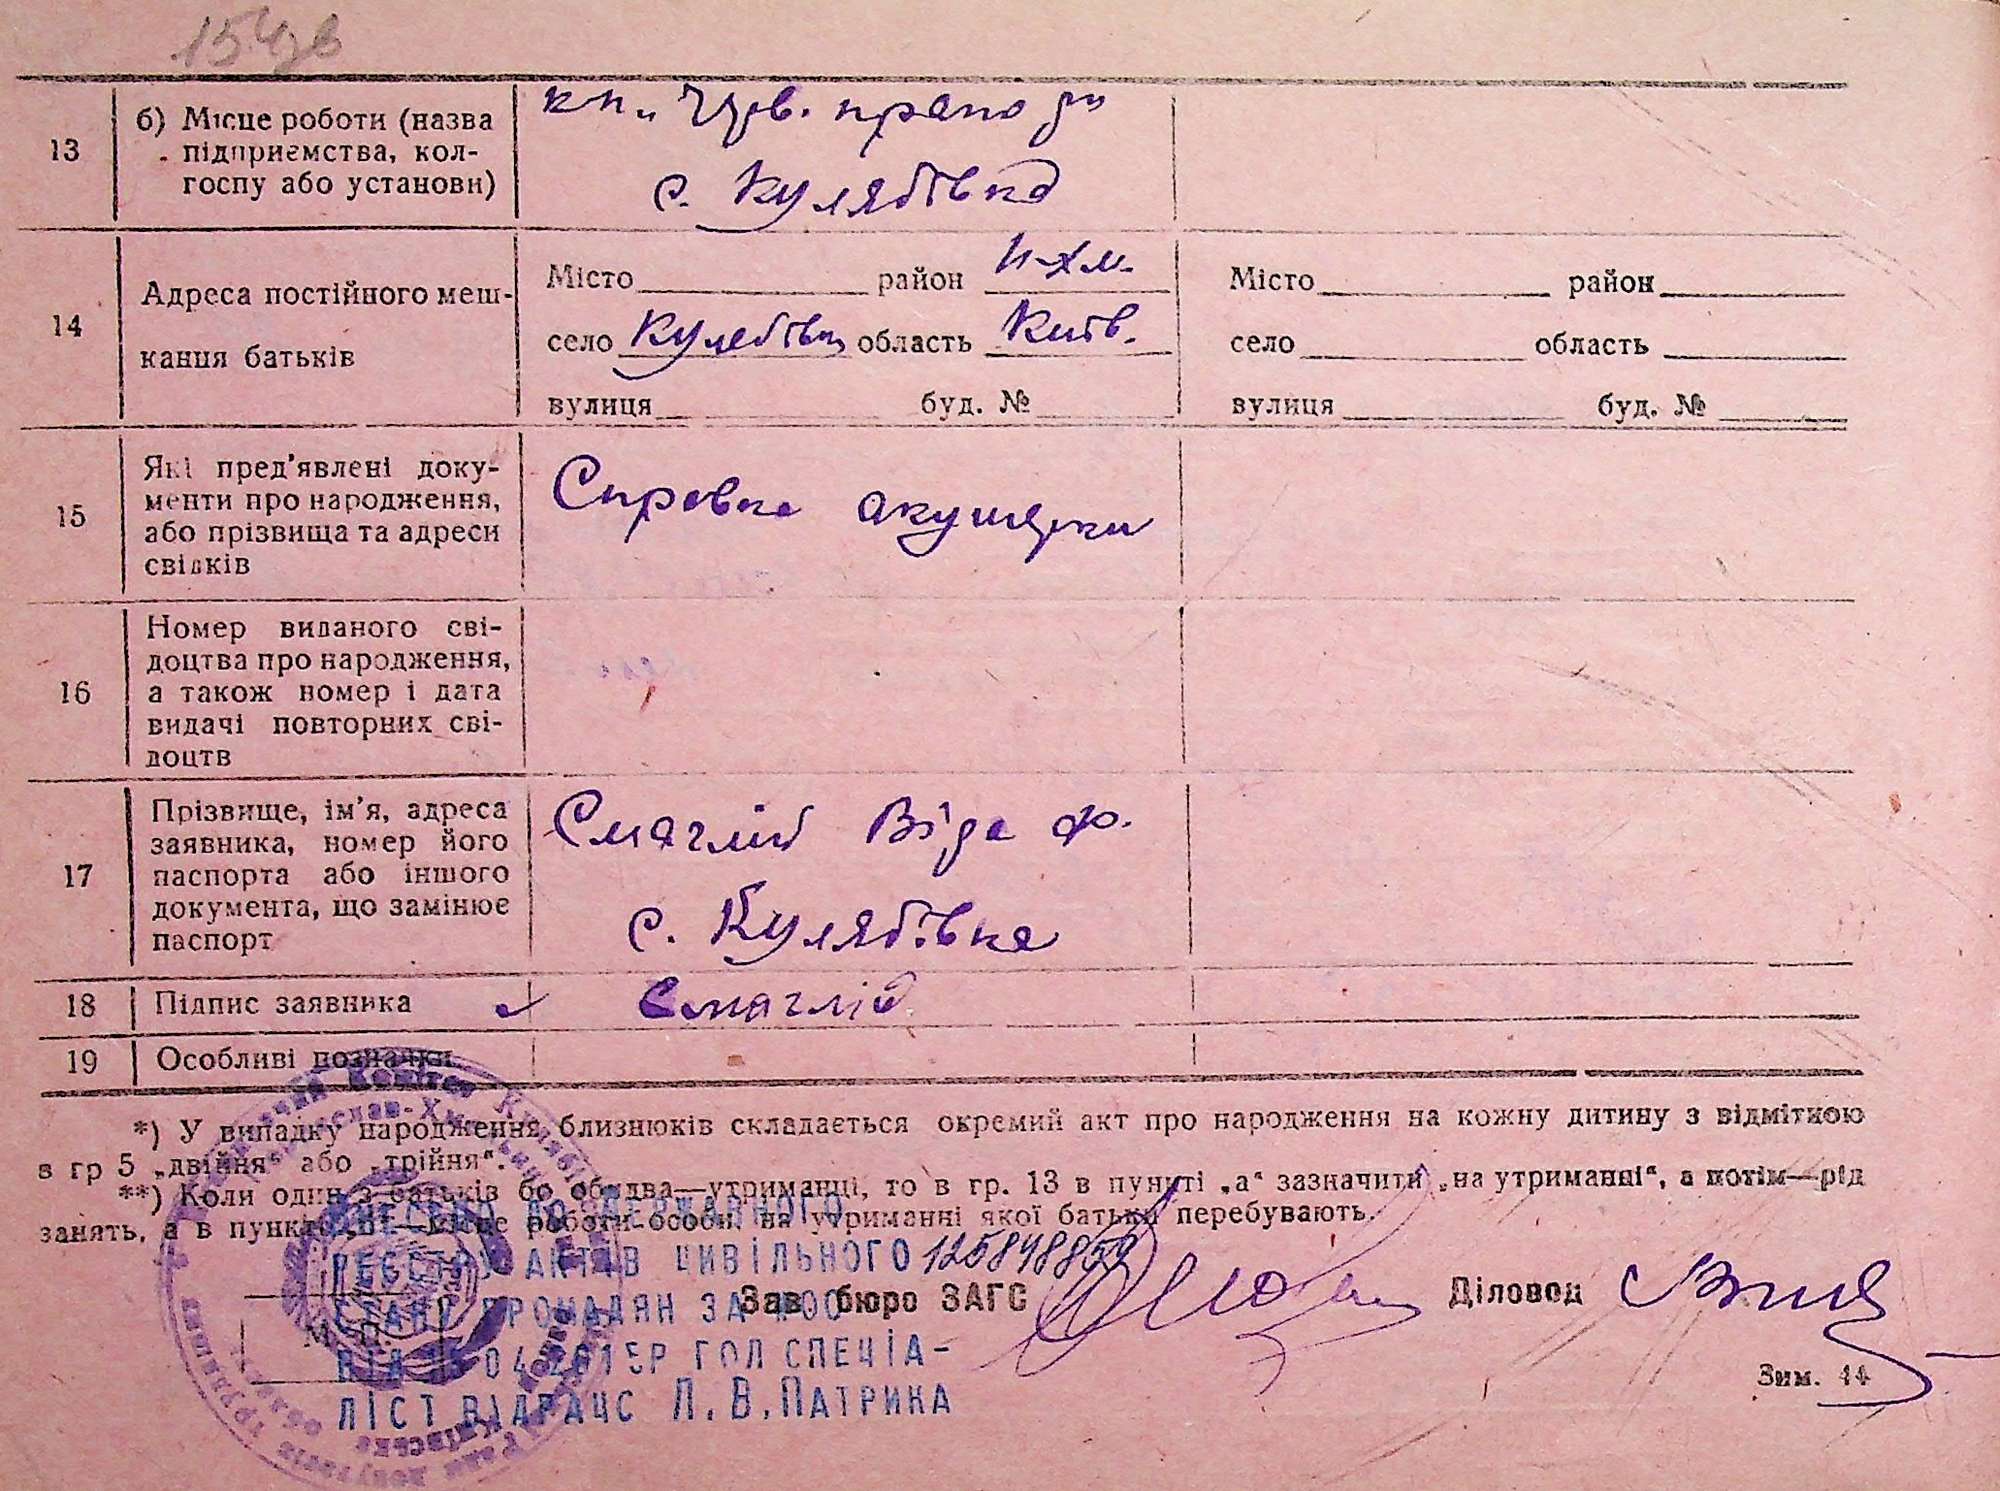 13
б) Місце роботи (назва
підприємства, кол-
госпу або установи)
кп. "Черв. прапор"
с. Кулябівка
14
Адреса постійного меш-
кання батьків
Місто район П-Хм. Місто район
село Кулябівка область Київ. село область
вулиця буд. № вулиця буд. №
15
Які пред'явлені доку-
менти про народження,
або прізвища та адреси
свідків
Справка акушерки
16
Номер виданого сві-
доцтва про народження,
а також номер і дата
видачі повторних сві-
доцтв
17
Прізвище, ім'я, адреса
заявника, номер його
паспорта або іншого
документа, що замінює
паспорт
Смаглій Віра Ф.
с. Кулябівка
18 Підпис заявника Смаглій
19 Особливі позначки
*) У випадку народження близнюків складається окремий акт про народження на кожну дитину з відміткою
в гр 5 „двійня“ або „трійня“.
**) Коли один з батьків бо обидва—утриманці, то в гр. 13 в пункті „а“ зазначити „на утриманні“, а потім—рід
занять, а в пункті „б“—місце роботи особи, на утриманні якої батьки перебувають.
ВНЕСЕНО ДО ДЕРЖАВНОГО
РЕЄСТРУ АКТІВ ЦИВІЛЬНОГО
СТАНУ ГРОМАДЯН ЗА №00 125848859
Зав. бюро ЗАГС Діловод
М. П.
04.2015Р ГОЛ СПЕЦІА-
ЛІСТ ВІДРАЦС Л.В.ПАТРИКА
Зим. 44